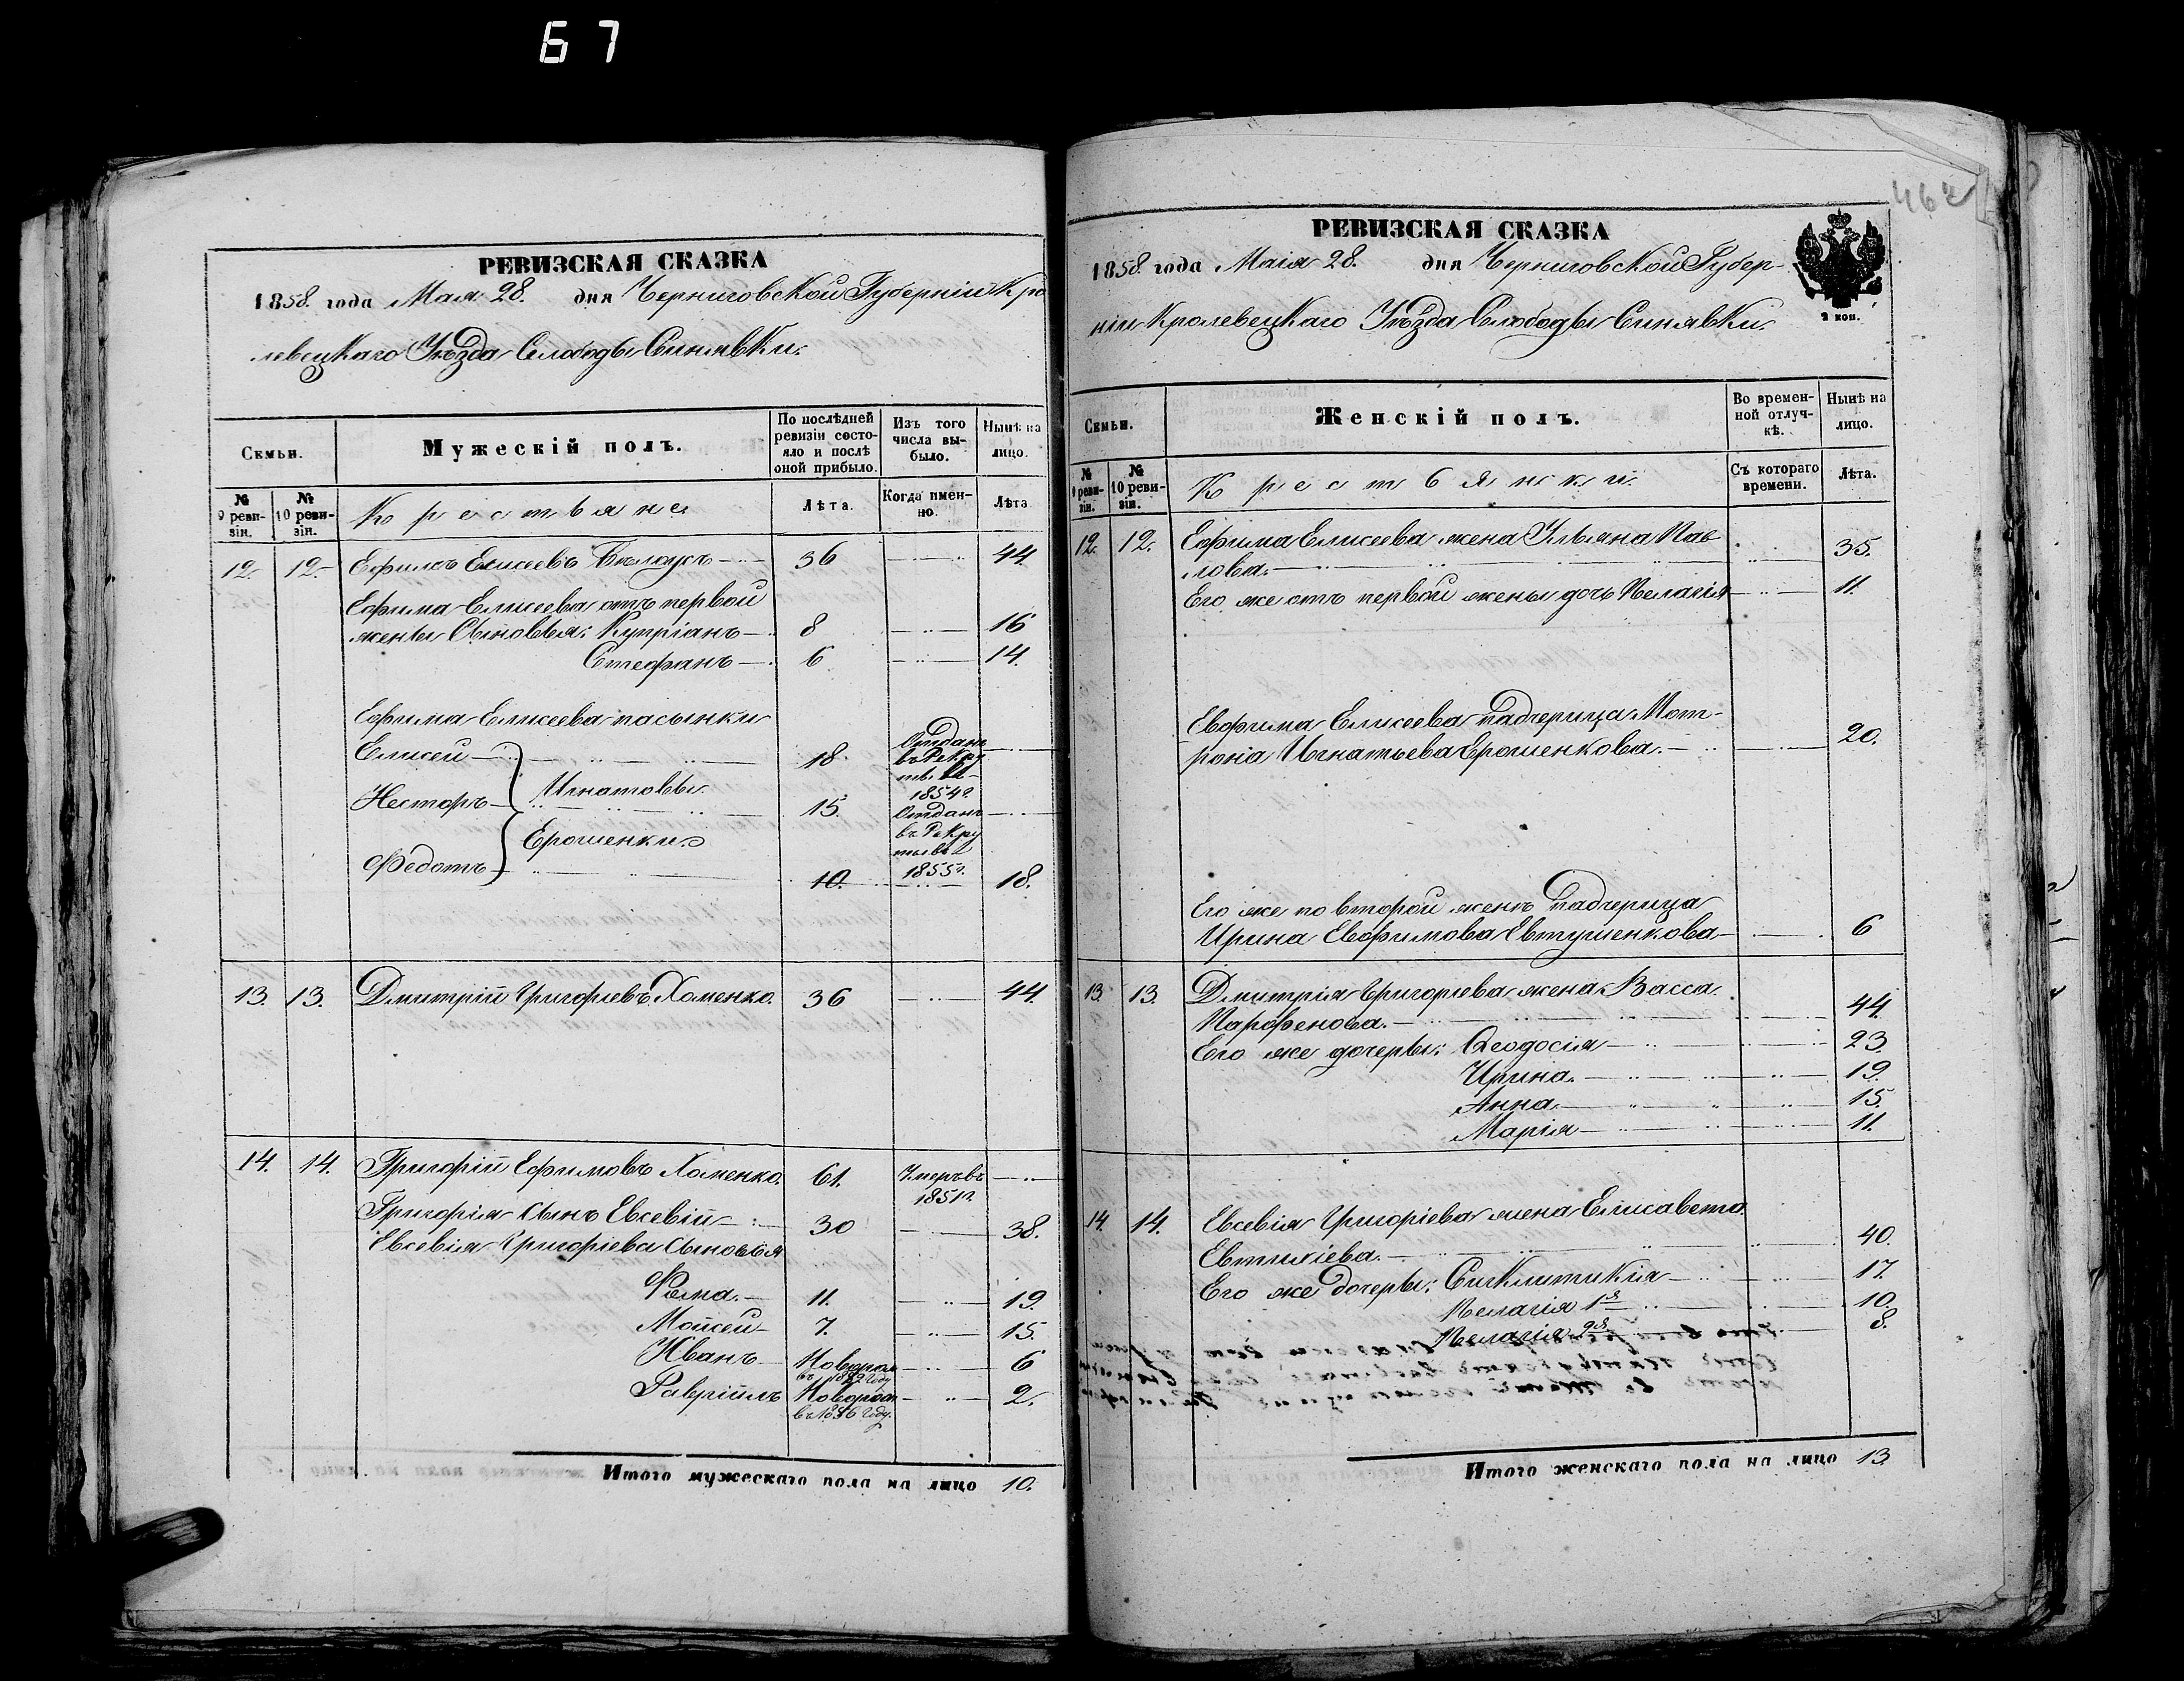 67
РЕВИЗСКАЯ СКАЗКА
1858. года Мая 28. дня Черниговской Губерніи Кро
левецкаго Уѣзда Слободы Синявки.
Семьи.
Мужескій полъ.
По послѣдней ревизіи состояло и послѣ оной прибыло.
Изъ того числа выбыло.
Нынѣ на лицо.
№ 9 ревизіи.
№ 10 ревизіи.
Крестьяне
Лѣта.
Когда именно.
Лѣта
12. 12. Ефимъ Елисеевъ Бѣлоусъ 36 44.
Ефима Елисеева отъ первой
жены Сыновья: Купріанъ 8 16
Стефанъ 6 14.
Ефима Елисеева пасынки
Елисей 18. Отданъ въ Рекруты въ 1854г.
Несторъ Игнатовы 15. Отданъ въ Рекруты въ 1855г.
Ерошенки
Федотъ 10. 18.
13. 13. Дмитрій Григорьевъ Хоменко. 36 44.
14. 14. Григорій Ефимовъ Хоменко. 61. Умеръ въ 1851г.
Григорія Сынъ Евсевій 30 38.
Евсевія Григоріева Сыновья
Фома. 11. 19.
Мойсей 7. 15.
Иванъ Новорож въ 1852 Году 6
Гавріилъ Новорож въ 1856 Году. 2.
Итого мужескаго пола на лицо 10.
462
РЕВИЗСКАЯ СКАЗКА
1858. года Маія 28. дня Черниговской Губер-
ніи Кролевецкаго Уѣзда Слободы Синявки.
2 коп.
Семьи.
Женскій полъ.
Во временной отлучкѣ.
Нынѣ на лицо.
№ 9 ревизіи.
№ 10 ревизіи.
Крестьянки.
Съ котораго времени.
Лѣта.
12. 12. Ефима Елисеева жена Ульяна Пав
лова. 35.
Его же отъ первой жены дочь Пелагія 11.
Евфима Елисеева Падчерица Мот-
рона Игнатьева Ерошенкова. 20.
Его же по второй женѣ Падчерица
Ирина Евфимова Евтушенкова 6
13. 13. Дмитрія Григорьева жена Васса
Парфенова. 44.
Его же дочеры: Феодосія 23.
Ирина. 19.
Анна. 15.
Марія 11.
14. 14. Евсевія Григоріева жена Елисавета
Евтихіева. 40.
Его же Дочеры: Синклитикія 17.
Пелагія 1я 10.
Пелагія 2я 8.
Итого женскаго пола на лицо 13.